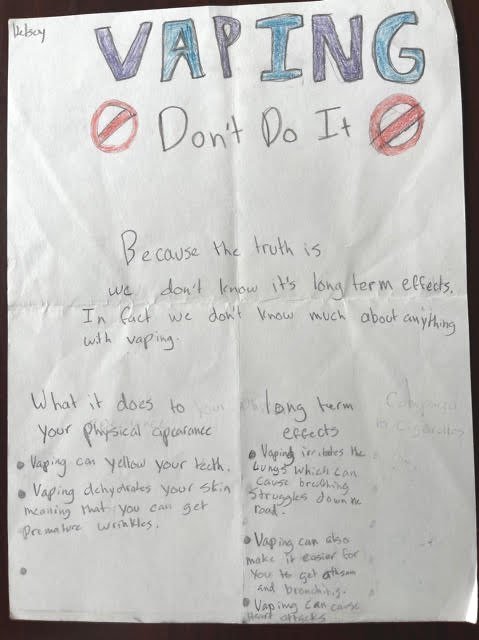 Kelsey
VAPING
Don't Do It
Because the truth is
we don't know it's long term effects.
In fact we don't know much about anything
with vaping.
What it does to
your physical apearance
• Vaping can yellow your teeth.
• Vaping dehydrates your skin
meaning that you can get
premature wrinkles.
long term
effects
• Vaping irritates the
Lungs which can
cause breathing
Struggles down the
road.
• Vaping can also
make it easier for
you to get
and
• Vaping can cause
Heart attacks
Compared
to Cigarettes